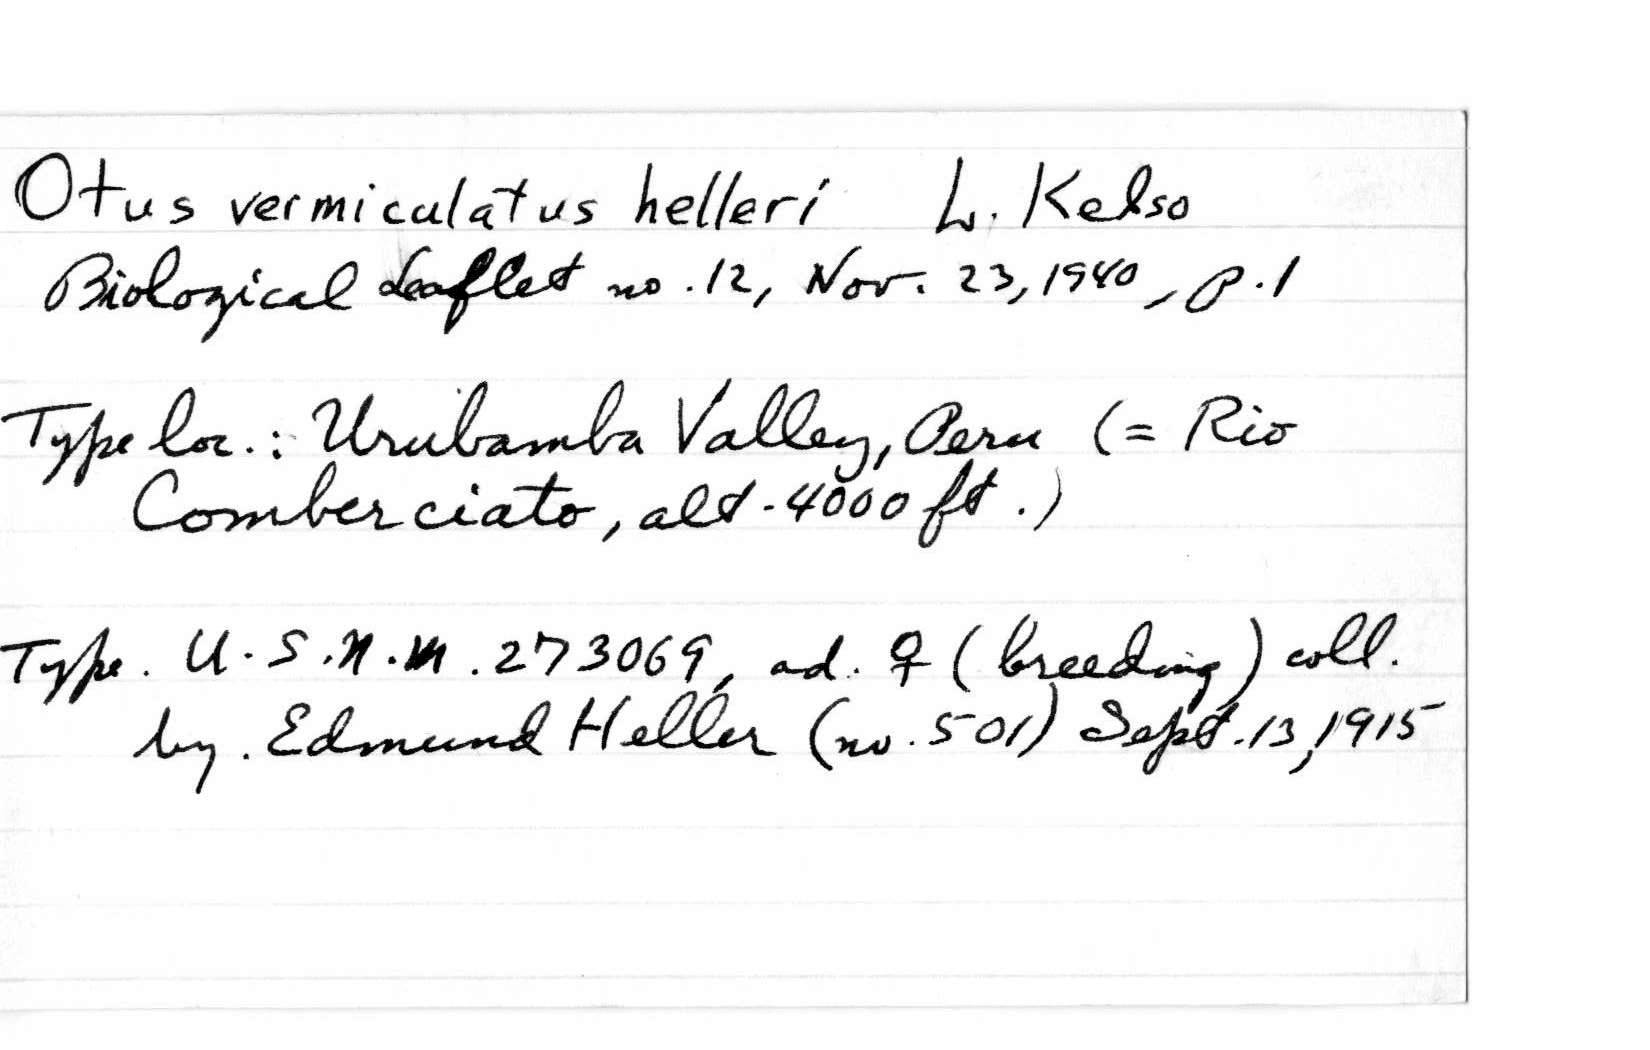 Otus vermiculatus helleri L. Kelso
Biological Leaflet no. 12, Nov. 23, 1940, p. 1
Type loc.: Urubamba Valley, Peru (= Rio
Comberciato, alt. 4000 ft.)
Type. U.S.N.M. 273069, ad. ♀ (breeding) coll.
by. Edmund Heller (no. 501) Sept. 13, 1915